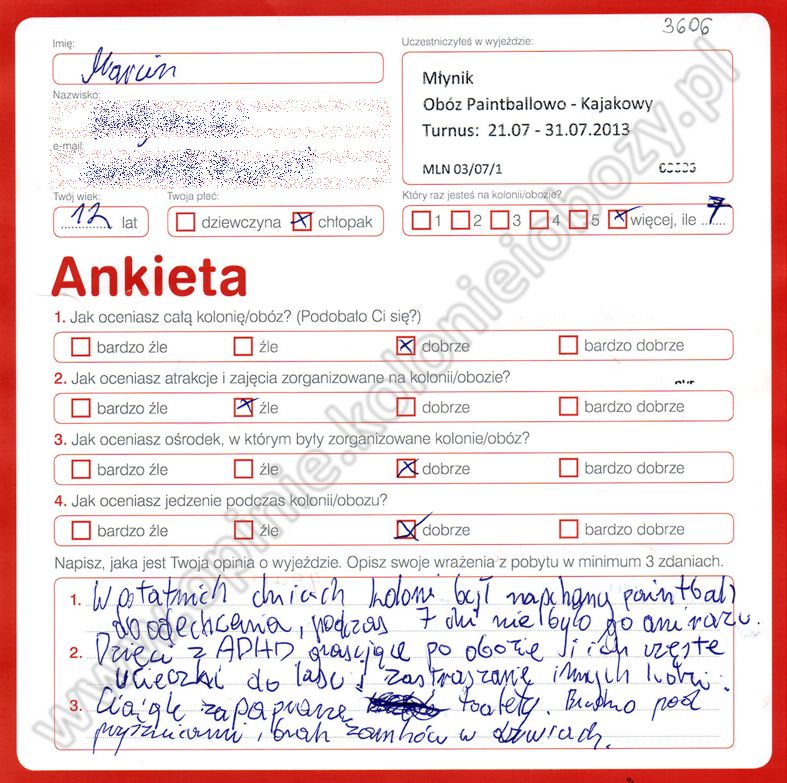 3606
Imię:
Marcin
Uczestniczyłeś w wyjeździe:
Młynik
Obóz Paintballowo - Kajakowy
Turnus: 21.07 - 31.07.2013
MLN 03/07/1
Nazwisko:
e-mail:
Twój wiek:
12 lat
Twoja płeć:
dziewczyna chłopak
Który raz jesteś na kolonii/obozie?
1 2 3 4 5 więcej, ile 7
Ankieta
1. Jak oceniasz całą kolonię/obóz? (Podobało Ci się?)
bardzo źle źle dobrze bardzo dobrze
2. Jak oceniasz atrakcje i zajęcia zorganizowane na kolonii/obozie?
bardzo źle źle dobrze bardzo dobrze
3. Jak oceniasz ośrodek, w którym były zorganizowane kolonie/obóz?
bardzo źle źle dobrze bardzo dobrze
4. Jak oceniasz jedzenie podczas kolonii/obozu?
bardzo źle źle dobrze bardzo dobrze
Napisz, jaka jest Twoja opinia o wyjeździe. Opisz swoje wrażenia z pobytu w minimum 3 zdaniach.
1. W ostatnich dniach kolonii był napchany paintball
do odechcenia, podczas 7 dni nie było go ani razu.
2. Dzieci z ADHD grasujące po obozie i ich częste
ucieczki do lasu i zastraszanie innych kolonii.
3. Ciągle zapaprane toalety. Brudno pod
prysznicami, brak zamków w drzwiach.
www.opinie.kolonieiobozy.pl